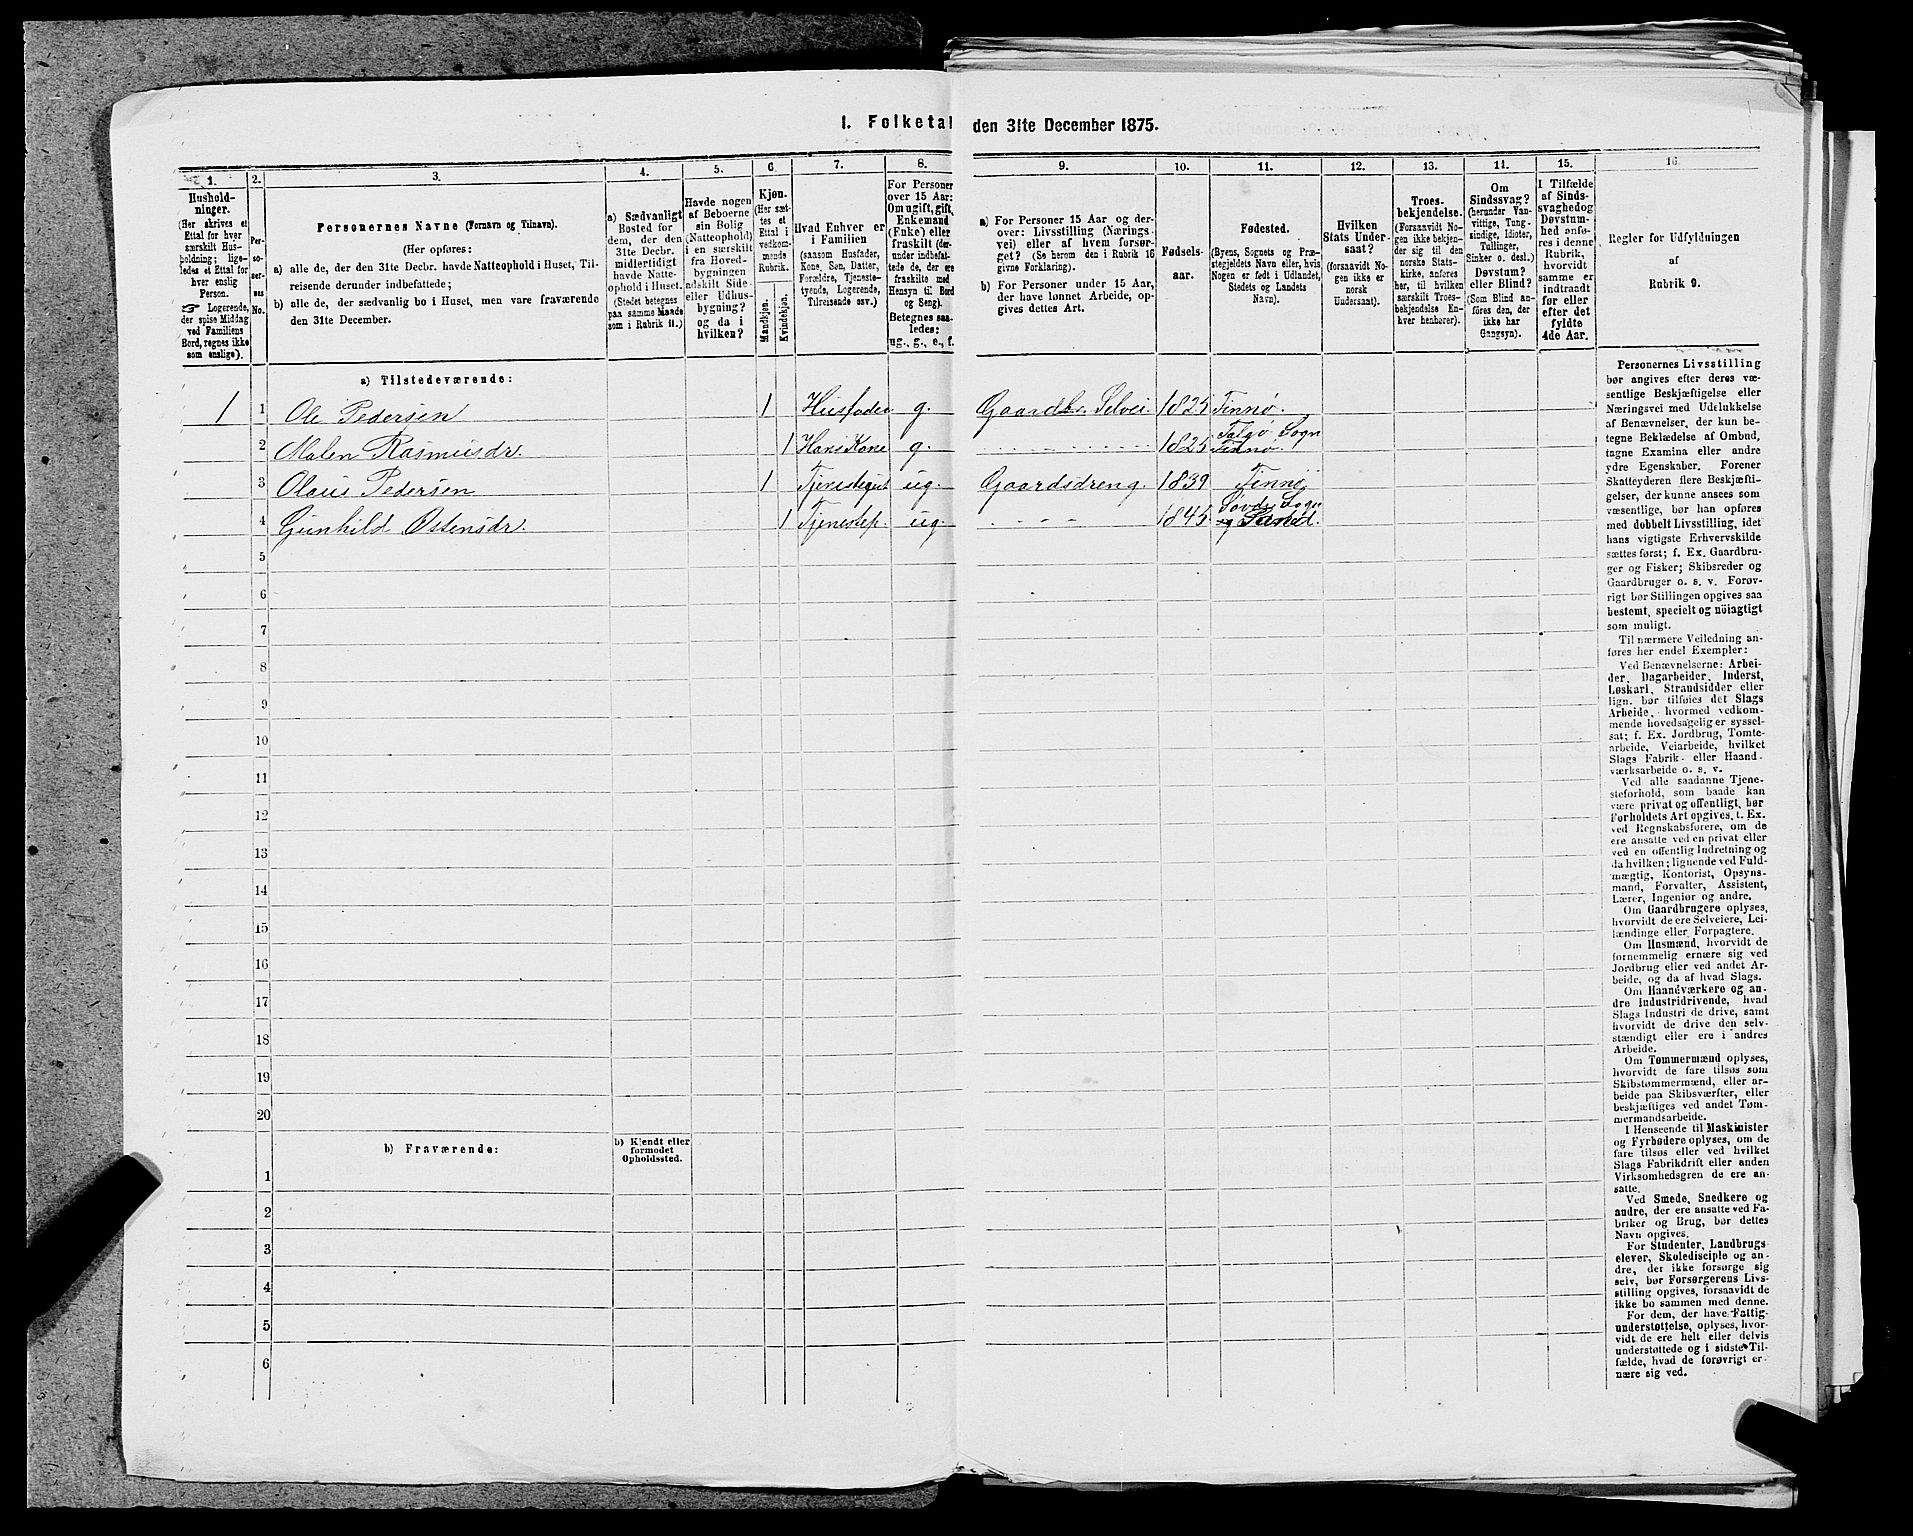 1. Folketal den 31te December 1875.
1. 2. 3. 4. 5. 6. 7. 8. 9. 10. 11. 12. 13. 14. 15. 16.
Hushold-
ninger.
(Her skrives et
Ettal for hver
særskilt Hus-
holdning; lige-
ledes et Ettal for
hver enslig
Person.
☞ Logerende,
der spise Middag
ved Familiens
Bord, regnes ikke
som enslige).
Per-
so-
ner-
nes
No.
Personernes Navne (Fornavn og Tilnavn).
(Her opføres:
a) alle de, der den 31te Decbr. havde Natteophold i Huset, Til-
reisende derunder indbefattede;
b) alle de, der sædvanlig bo i Huset, men vare fraværende
den 31te December.
a) Sædvanligt
Bosted for
dem, der den
31te Decbr.
midlertidigt
havde Natte-
ophold i Huset.
(Stedet betegnes
paa samme Maade
som i Rubrik 11.)
Havde nogen
af Beboerne
sin Bolig
(Natteophold)
i en særskilt
fra Hoved-
bygningen
adskilt Side-
eller Udhus-
bygning?
og da i
hvilken?
Kjøn.
(Her sæt-
tes et
Ettal i
vedkom-
mende
Rubrik.
Mandkjøn.
Kvindekjøn.
Hvad Enhver er
i Familien
(saasom Husfader,
Kone, Søn, Datter,
Forældre, Tjeneste-
tyende, Logerende,
Tilreisende osv.)
For Personer
over 15 Aar:
Om ugift, gift,
Enkemand
(Enke) eller
fraskilt (der-
under indbefat-
tede de, der ere
fraskilte med
Hensyn til Bord
og Seng).
Betegnes saa-
ledes:
ug., g., e., f.
a) For Personer 15 Aar og der-
over: Livsstilling (Nærings-
vei) eller af hvem forsør-
get? (Se herom den i Rubrik 16
givne Forklaring).
b) For Personer under 15 Aar,
der have lønnet Arbeide, op-
gives dettes Art.
Fødsels-
aar.
Fødested.
(Byens, Sognets og Præ-
stegjeldets Navn eller, hvis
Nogen er født i Udlandet,
Stedets og Landets
Navn).
Hvilken
Stats Under-
saat?
(forsaavidt No-
gen ikke er
norsk
Undersaat).
Troes-
bekjendelse.
(Forsaavidt No-
gen ikke bekjen-
der sig til den
norske Stats-
kirke, anføres
her, til hvilken
særskilt Troes-
bekjendelse En-
hver henhører).
Om
Sindssvag?
(herunder Van-
vittige, Tung-
sindige, Idioter,
Tullinger,
Sinker o. desl.)
Døvstum?
eller Blind?
(Som Blind an-
føres den, der
ikke har
Gangsyn).
I Tilfælde
af Sinds-
svaghed og
Døvstum-
hed anfø-
res i denne
Rubrik,
hvorvidt
samme er
indtraadt
før eller
efter det
fyldte
4de Aar.
Regler for Udfyldningen
af
Rubrik 9.
a) Tilstedeværende:
1 1 Ole Pedersen 1 Husfader g. Gaardbr. Selvei. 1825 Finnø.
2 Malen Rasmusdr. 1 Hans Kone g. 1825 Talgø Sogn Finnø.
3 Olaus Pedersen 1 Tjenestegut ug. Gaardsdreng. 1839 Finnø
4 Gunhild Ostensdr. 1 Tjenestep. ug. 1845 Søvde Sogn og Sand.
5
6
7
8
9
10
11
12
13
14
15
16
17
18
19
20
b) Fraværende:
b) Kjendt eller
formodet
Opholdssted.
1
2
3
4
5
6
Personernes Livsstilling
bør angives efter deres væ-
sentlige Beskjæftigelse eller
Næringsvei med Udelukkelse
af Benævnelser, der kun be-
tegne Beklædelse af Ombud,
tagne Examina eller andre
ydre Egenskaber. Forener
Skatteyderen flere Beskjæfti-
gelser, der kunne ansees som
væsentlige, bør han opføres
med dobbelt Livsstilling, idet
hans vigtigste Erhvervskilde
sættes først; f. Ex. Gaardbru-
ger og Fisker; Skibsreder og
Gaardbruger o. s. v. Forøv-
rigt bør Stillingen opgives saa
bestemt, specielt og nöiagtigt
som muligt.
Til nærmere Veiledning an-
føres her endel Exempler:
Ved Benævnelserne: Arbei-
der, Dagarbeider, Inderst,
Løskarl, Strandsidder eller
lign. bør tilføies det Slags
Arbeide, hvormed vedkom-
mende hovedsagelig er syssel-
sat; f. Ex. Jordbrug, Tomte-
arbeide, Veiarbeide, hvilket
Slags Fabrik- eller Haand-
værksarbeide o. s. v.
Ved alle saadanne Tjene-
steforhold, som baade kan
være privat og offentligt, bør
Forholdets Art opgives, t. Ex.
ved Regnskabsførere, om de
ere ansatte ved en privat eller
ved en offentlig Indretning og
da hvilken; lignende ved Fuld-
mægtig, Kontorist, Opsyns-
mand, Forvalter, Assistent,
Lærer, Ingeniør og andre.
Om Gaardbrugere oplyses,
hvorvidt de ere Selveiere, Lei-
lændinge eller Forpagtere.
Om Husmænd, hvorvidt de
fornemmelig ernære sig ved
Jordbrug eller ved andet Ar-
beide, og da af hvad Slags.
Om Haandværkere og an-
dre Industridrivende, hvad
Slags Industri de drive, samt
hvorvidt de drive den selv-
stændigt eller ere i andres
Arbeide.
Om Tømmermænd oplyses,
hvorvidt de fare tilsøs som
Skibstømmermænd, eller ar-
beide paa Skibsværfter, eller
beskjæftiges ved andet Tøm-
mermandsarbeide.
I Henseende til Maskinister
og Fyrbødere oplyses, om de
fare tilsøs eller ved hvilket
Slags Fabrikdrift eller anden
Virksomhedsgren de ere an-
satte.
Ved Smede, Snedkere og
andre, der ere ansatte ved Fa-
briker og Brug, bør dettes
Navn opgives.
For Studenter, Landbrugs-
elever, Skoledisciple og an-
dre, der ikke forsørge sig
selv, bør Forsørgerens Livs-
stilling opgives, forsaavidt de
ikke bo sammen med denne.
For dem, der have Fattig-
understøttelse, oplyses, hvor-
vidt de ere helt eller delvis
understøttede og i sidste Til-
fælde, hvad de forøvrigt er-
nære sig ved.